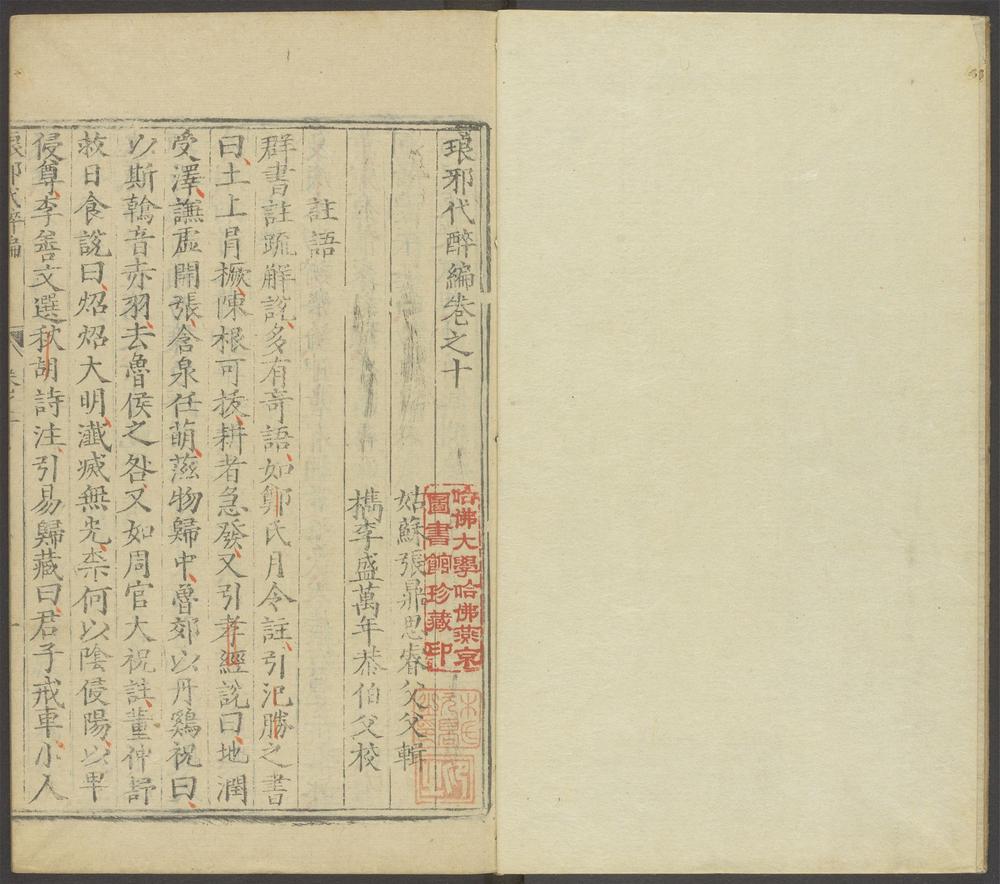 琅邪代醉編卷之十
姑蘇張鼎思睿父父輯
檇李盛萬年恭伯父校
註語
群書註䟽解說多有竒語如鄭氏月令註引氾勝之書
曰土上冐橛陳根可拔耕者急發又引孝經說曰地潤
受澤謙虛開張含泉任萌滋物歸中魯郊以丹鷄祝曰
以斯鶾音赤羽去魯侯之咎又如周官大祝註董仲舒
救日食說曰炤炤大明瀸滅無光柰何以陰侵陽以卑
侵尊李善文選秋胡詩注引易歸藏曰君子戒車小人
琅邪代醉編
哈佛大學哈佛燕京
圖書館珍藏印